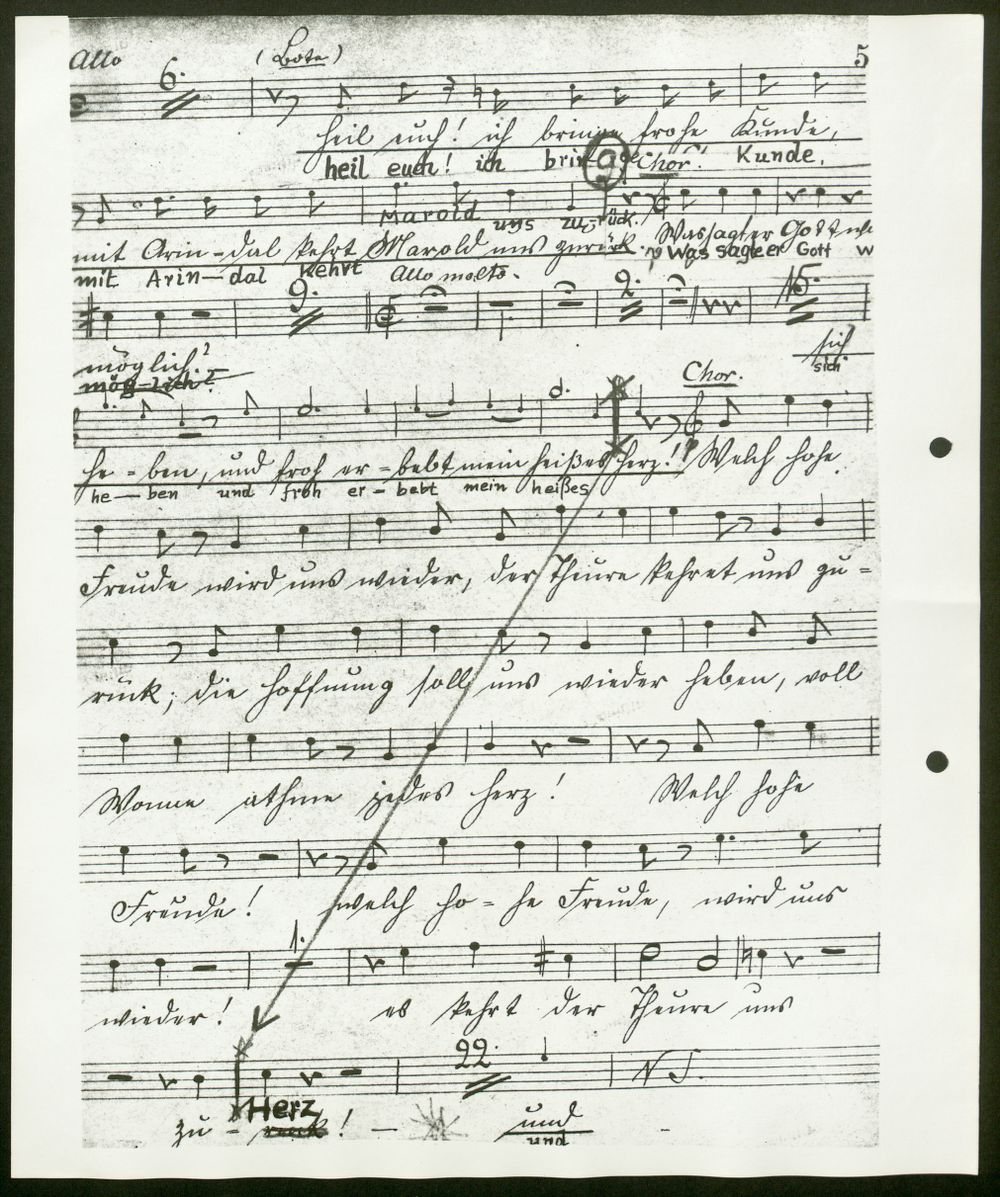 Allo (Bote) 5
6.
heil euch! ich bringe frohe Kunde,
heil euch! ich brin-ge 9 Chor! Kunde,
Marold uns zu-rück.
mit Arin-dal kehrt Marold uns zurück. Was sagt er Gott
mit Arin-dal kehrt Was sagte er Gott w
Allo molto.
9. 2. 15.
möglich? sich
mög-lich? sich
Chor.
he-ben, und froh er-bebt mein heißes Herz! Welch hohe
he-ben und froh er-bebt mein heißes
Freude wird uns wieder, der Theure kehret uns zu=
rück; die Hoffnung soll uns wieder heben, voll
Wonne athme jedes Herz! Welch hohe
Freude! welch ho-he Freude, wird uns
1.
wieder! es kehrt der Theure uns
22. N S.
Herz
zu-rück! — und
und